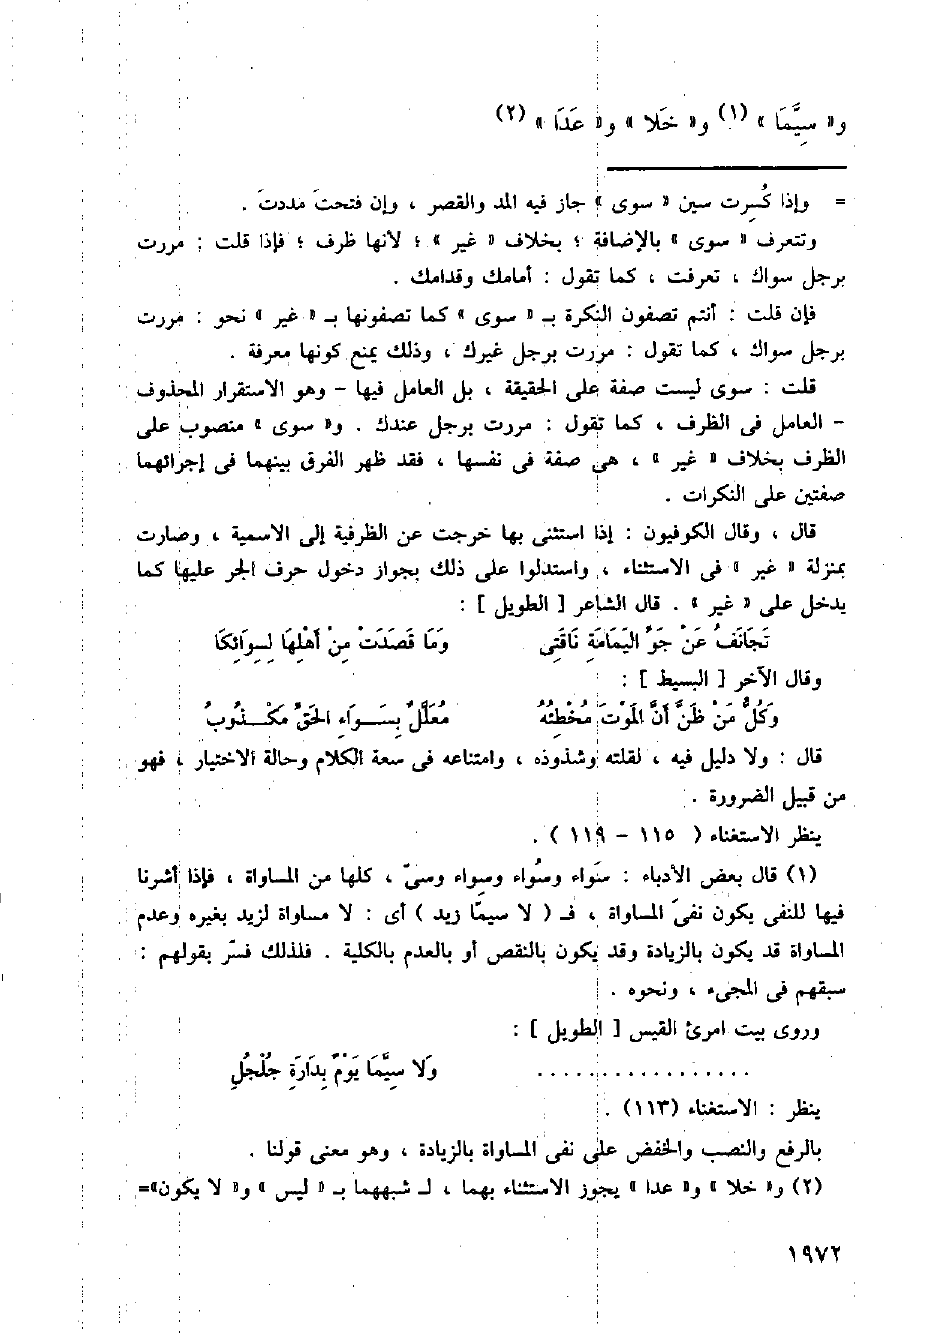 و« سِيَّمَا » (١) و« خَلا » و« عَدَا » (٢)
= وإذا كُسِرت سين « سوى » جاز فيه المد والقصر ، وإن فتحتَ مددتَ .
وتتعرف « سوى » بالإضافة ؛ بخلاف « غير » ؛ لأنها ظرف ؛ فإذا قلت : مررت
برجل سواك ، تعرفت ، كما تقول : أمامك وقدامك .
فإن قلت : أنتم تصفون النكرة بـ « سوى » كما تصفونها بـ « غير » نحو : مررت
برجل سواك ، كما تقول : مررت برجل غيرك ، وذلك يمنع كونها معرفة .
قلت : سوى ليست صفة على الحقيقة ، بل العامل فيها – وهو الاستقرار المحذوف
– العامل فى الظرف ، كما تقول : مررت برجل عندك . و« سوى » منصوب على
الظرف بخلاف « غير » ، هى صفة فى نفسها ، فقد ظهر الفرق بينهما فى إجرائهما
صفتين على النكرات .
قال ، وقال الكوفيون : إذا استثنى بها خرجت عن الظرفية إلى الاسمية ، وصارت
بمنزلة « غير » فى الاستثناء ، واستدلوا على ذلك بجواز دخول حرف الجر عليها كما
يدخل على « غير » . قال الشاعر [ الطويل ] :
تَجَانَفُ عَنْ جَوِّ اليَمَامَةِ نَاقَتِى وَمَا قَصَدَتْ مِنْ أَهْلِهَا لِسِوَائِكَا
وقال الآخر [ البسيط ] :
وَكُلُّ مَنْ ظَنَّ أَنَّ المَوْتَ مُخْطِئُهُ مُعَلَّلٌ بِسَوَاءِ الحَقِّ مَكْذُوبُ
قال : ولا دليل فيه ، لقلته وشذوذه ، وامتناعه فى سعة الكلام وحالة الاختيار ، فهو
من قبيل الضرورة .
ينظر الاستغناء ( ١١٥ – ١١٩ ) .
(١) قال بعض الأدباء : سَواء وسُواء وسِواء وسىّ ، كلها من المساواة ، فإذا أشرنا
فيها للنفى يكون نفىَ المساواة ، فـ ( لا سيمّا زيد ) أى : لا مساواة لزيد بغيره وعدم
المساواة قد يكون بالزيادة وقد يكون بالنقص أو بالعدم بالكلية . فلذلك فسّر بقولهم :
سبقهم فى المجىء ، ونحوه .
وروى بيت امرئ القيس [ الطويل ] :
. . . . . . . . . . . . . . . . . وَلا سِيَّمَا يَوْمٌ بِدَارَةِ جُلْجُلِ
ينظر : الاستغناء (١١٣) .
بالرفع والنصب والخفض على نفى المساواة بالزيادة ، وهو معنى قولنا .
(٢) و« خلا » و« عدا » يجوز الاستثناء بهما ، لـ شبههما بـ « ليس » و« لا يكون»=
١٩٧٢